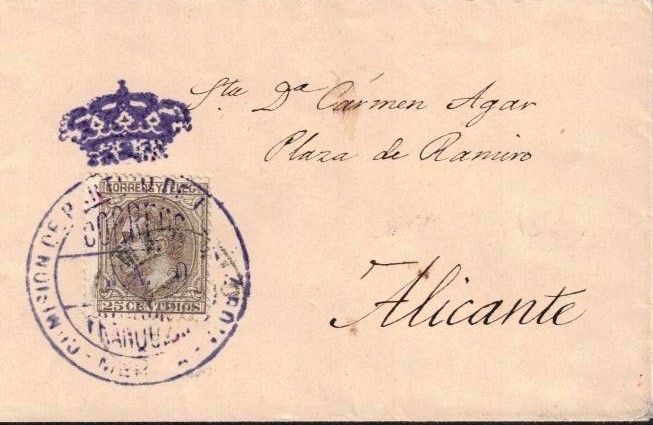 Sta Da Cármen Agar
Plaza de Ramiro
Alicante
CORREOS Y TELEG
CORREOS
25 CENTIMOS
COMISION DE